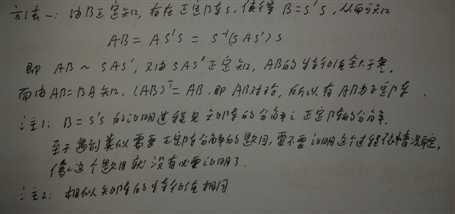 方法一：由B正定知，存在正定阵S，使得 B=S'S，从而知
AB = AS'S = S⁻¹(SAS')S
即 AB ~ SAS'，又由 SAS' 正定知，AB的特征值全大于零.
而由AB=BA知，(AB)ᵀ=AB，即AB对称，所以有AB为正定阵.
注1：B=S'S 的证明过程见 正定阵的分解.
至于遇到类似需要 正定阵分解的题目，要不要证明这个过程
像这个题目就没有必要证明了.
注2：相似矩阵的特征值相同